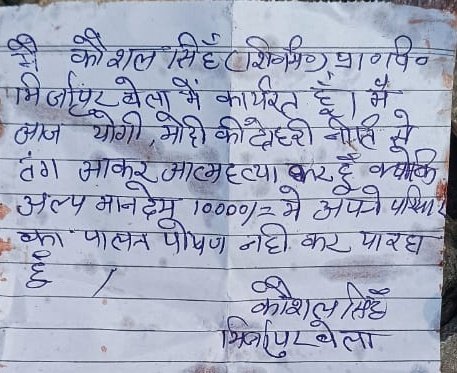 मै कौशल सिंह (शि०मि०) प्रा०वि०
मिर्जापुर बेला में कार्यरत हूँ। मैं
आज योगी, मोदी की दोहरी नीति से
तंग आकर आत्महत्या कर हूँ क्योंकि
अल्प मानदेय 10000/= मे अपने परिवार
का पालन पोषण नही कर पारहा
हूँ /
कौशल सिंह
मिर्जापुर बेला